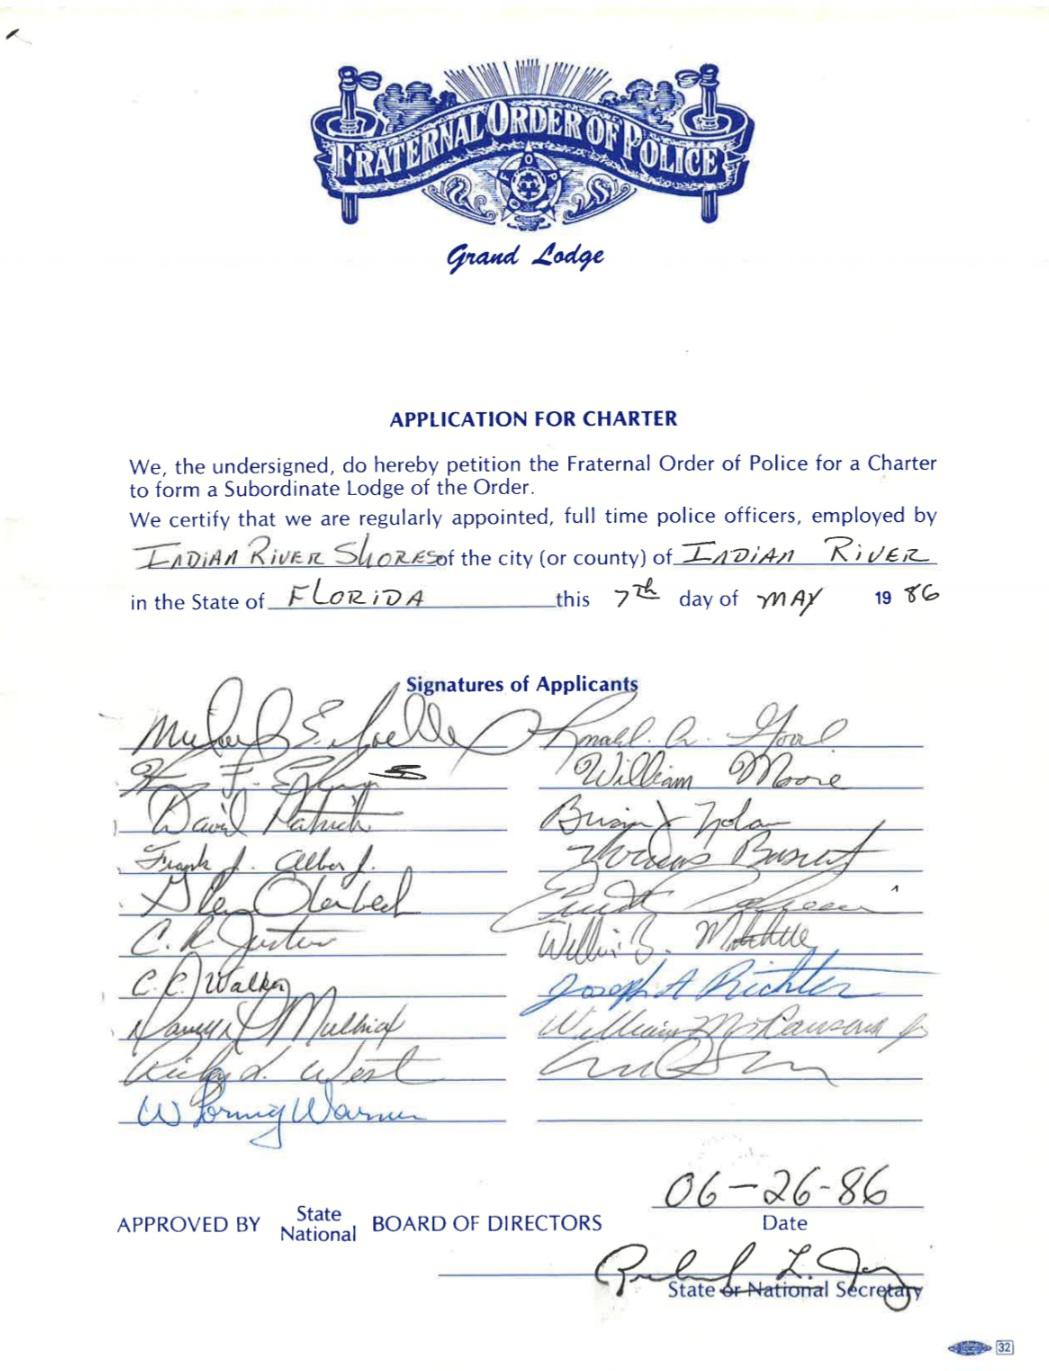 FRATERNAL ORDER OF POLICE
F O P
Grand Lodge
APPLICATION FOR CHARTER
We, the undersigned, do hereby petition the Fraternal Order of Police for a Charter
to form a Subordinate Lodge of the Order.
We certify that we are regularly appointed, full time police officers, employed by
INDIAN RIVER SHORES of the city (or county) of INDIAN RIVER
in the State of FLORIDA this 7th day of MAY 19 86
Signatures of Applicants
E.
William Moore
David
Brian J Nolan
Frank J.
Thomas
Glen
C. R. Justen
Willie B.
C. C. Walker
Joseph A Richter
Nancy
William
Ricky L. West
W Warner
06-26-86
APPROVED BY State National BOARD OF DIRECTORS
Date
L.
State or National Secretary
32